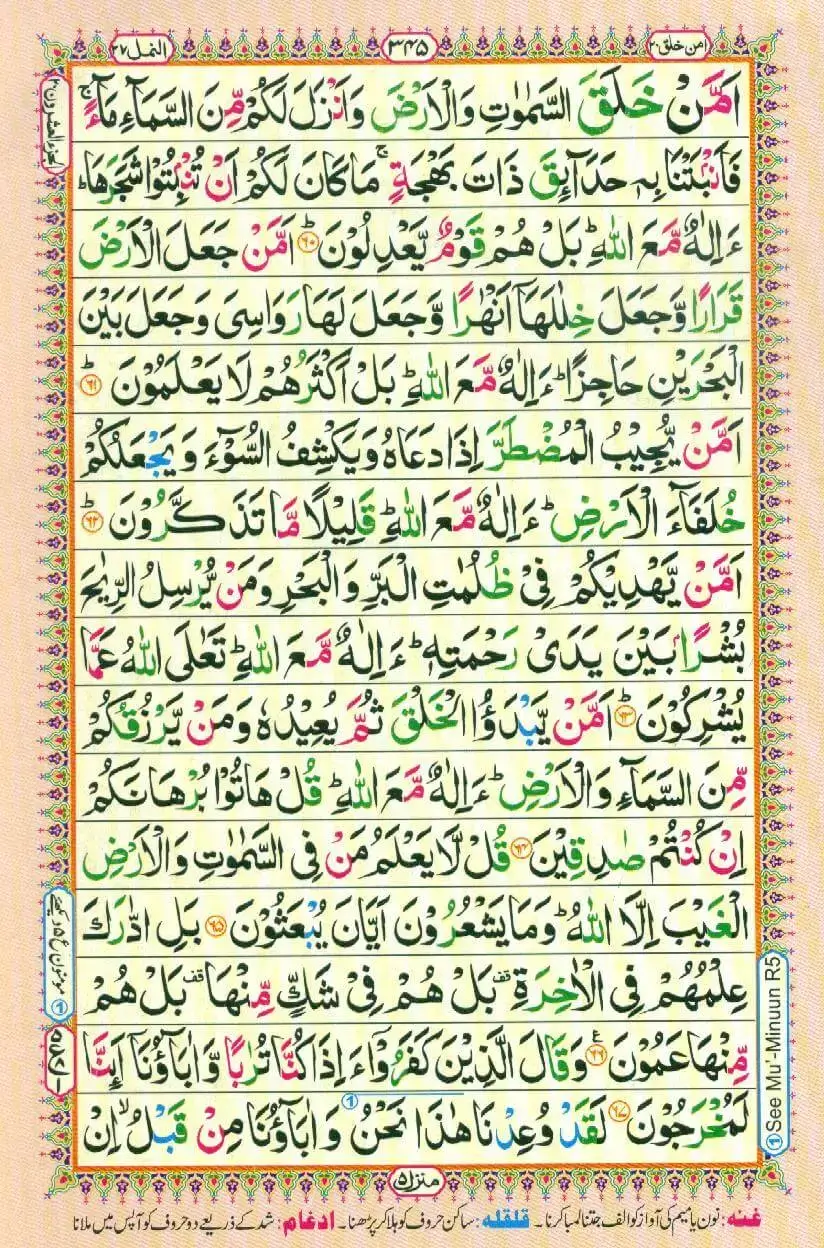 امن خلق ٢٠
٣٤٥
النمل ٢٧
اَمَّنْ خَلَقَ السَّمٰوٰتِ وَالْاَرْضَ وَاَنْزَلَ لَكُمْ مِّنَ السَّمَآءِ مَآءً ۚ
فَاَنْۢبَتْنَا بِهٖ حَدَآئِقَ ذَاتَ بَهْجَةٍ ۚ مَا كَانَ لَكُمْ اَنْ تُنْۢبِتُوْا شَجَرَهَا ؕ
ءَاِلٰهٌ مَّعَ اللّٰهِ ؕ بَلْ هُمْ قَوْمٌ يَّعْدِلُوْنَ ؕ ﴿٦٠﴾ اَمَّنْ جَعَلَ الْاَرْضَ
قَرَارًا وَّجَعَلَ خِلٰلَهَاۤ اَنْهٰرًا وَّجَعَلَ لَهَا رَوَاسِىَ وَجَعَلَ بَيْنَ
الْبَحْرَيْنِ حَاجِزًا ؕ ءَاِلٰهٌ مَّعَ اللّٰهِ ؕ بَلْ اَكْثَرُهُمْ لَا يَعْلَمُوْنَ ؕ ﴿٦١﴾
اَمَّنْ يُّجِيْبُ الْمُضْطَرَّ اِذَا دَعَاهُ وَيَكْشِفُ السُّوْٓءَ وَيَجْعَلُكُمْ
خُلَفَآءَ الْاَرْضِ ؕ ءَاِلٰهٌ مَّعَ اللّٰهِ ؕ قَلِيْلًا مَّا تَذَكَّرُوْنَ ؕ ﴿٦٢﴾
اَمَّنْ يَّهْدِيْكُمْ فِىْ ظُلُمٰتِ الْبَرِّ وَالْبَحْرِ وَمَنْ يُّرْسِلُ الرِّيٰحَ
بُشْرًۢا بَيْنَ يَدَىْ رَحْمَتِهٖ ؕ ءَاِلٰهٌ مَّعَ اللّٰهِ ؕ تَعٰلَى اللّٰهُ عَمَّا
يُشْرِكُوْنَ ؕ ﴿٦٣﴾ اَمَّنْ يَّبْدَؤُا الْخَلْقَ ثُمَّ يُعِيْدُهٗ وَمَنْ يَّرْزُقُكُمْ
مِّنَ السَّمَآءِ وَالْاَرْضِ ؕ ءَاِلٰهٌ مَّعَ اللّٰهِ ؕ قُلْ هَاتُوْا بُرْهَانَكُمْ
اِنْ كُنْتُمْ صٰدِقِيْنَ ﴿٦٤﴾ قُلْ لَّا يَعْلَمُ مَنْ فِى السَّمٰوٰتِ وَالْاَرْضِ
الْغَيْبَ اِلَّا اللّٰهُ ؕ وَمَا يَشْعُرُوْنَ اَيَّانَ يُبْعَثُوْنَ ﴿٦٥﴾ بَلِ ادّٰرَكَ
عِلْمُهُمْ فِى الْاٰخِرَةِ قف بَلْ هُمْ فِىْ شَكٍّ مِّنْهَا قف بَلْ هُمْ
مِّنْهَا عَمُوْنَ ﴿٦٦﴾ ع وَقَالَ الَّذِيْنَ كَفَرُوْٓا ءَاِذَا كُنَّا تُرٰبًا وَّاٰبَآؤُنَاۤ اَئِنَّا
لَمُخْرَجُوْنَ ﴿٦٧﴾ لَقَدْ وُعِدْنَا هٰذَا نَحْنُ وَاٰبَآؤُنَا مِنْ قَبْلُ ۙ اِنْ
الجزء العشرون ٢٠
① See Mu'-Minuun R5
منزل ٥
غنه: نون یا میم کی آواز کو الف جتنا لمبا کرنا۔ قلقله: ساکن حروف کو ہلا کر پڑھنا۔ ادغام: شد کے ذریعے دو حروف کو آپس میں ملانا